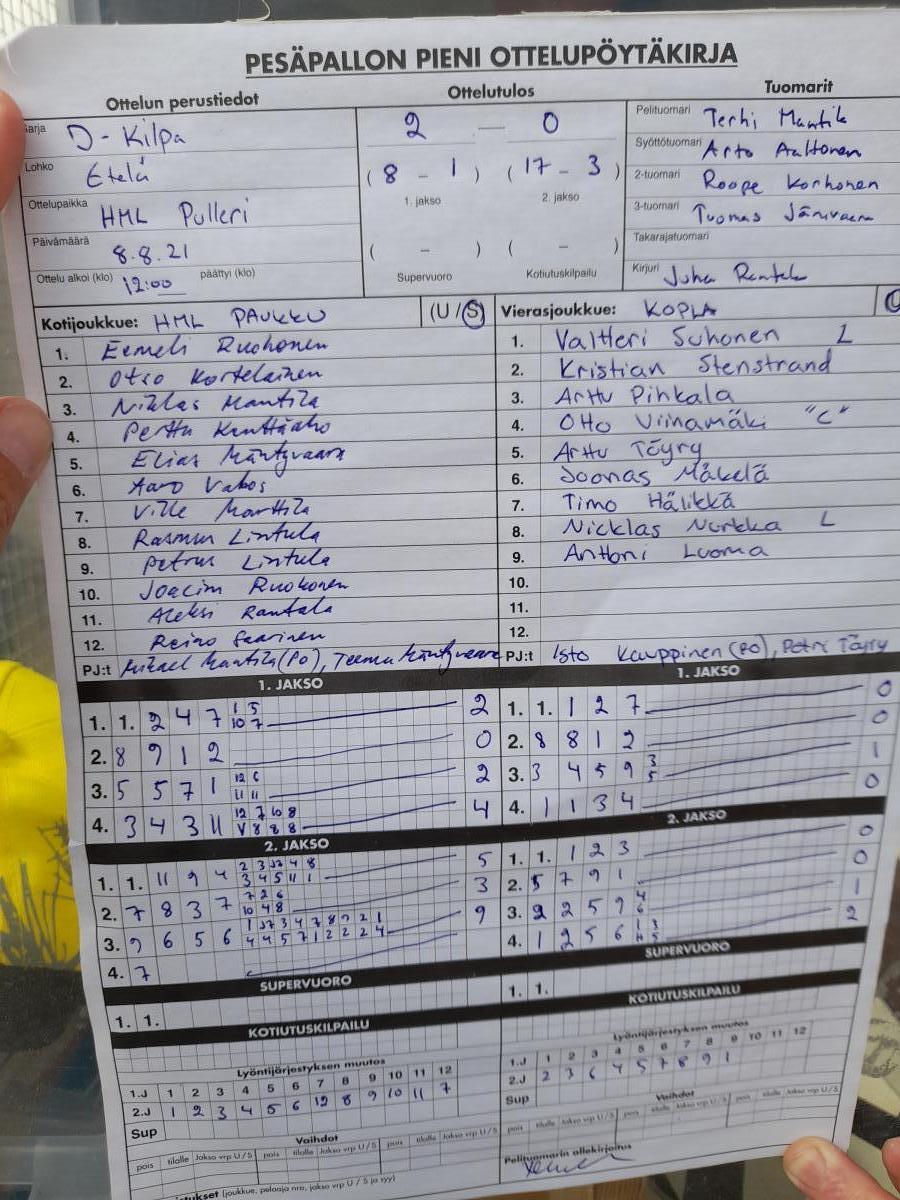 PESÄPALLON PIENI OTTELUPÖYTÄKIRJA
Ottelun perustiedot
Ottelutulos
Tuomarit
Sarja D-Kilpa
Lohko Etelä
Ottelupaikka HML Pulleri
Päivämäärä 8.8.21
Ottelu alkoi (klo) 12:00 päättyi (klo)
2 — 0
( 8 - 1 ) ( 17 - 3 )
1. jakso 2. jakso
( - ) ( - )
Supervuoro Kotiutuskilpailu
Pelituomari Terhi Mantila
Syöttötuomari Arto Aaltonen
2-tuomari Roope Korhonen
3-tuomari Tuomas
Takarajatuomari
Kirjuri Juha Rantala
Kotijoukkue: HML PAUKKU (U/S)
1. Eemeli Ruohonen
2. Otso Kortelainen
3. Niklas Mantila
4. Perttu
5. Elias Mäntyvaara
6. Aaro
7. Ville Marttila
8. Rasmus Lintula
9. Petrus Lintula
10. Joacim Ruohonen
11. Aleksi Rantala
12. Reino Saarinen
PJ:t Mikael Mantila (PO), Teemu Mäntyvaara
Vierasjoukkue: KOPLA
1. Valtteri Suhonen L
2. Kristian Stenstrand
3. Arttu Pihkala
4. Otto Viinamäki "C"
5. Arttu Töyry
6. Joonas Mäkelä
7. Timo Hälikkä
8. Nicklas Nurkka L
9. Anttoni Luoma
10.
11.
12.
PJ:t Isto Kauppinen (PO), Petri Töyry
1. JAKSO
1. 1. 2 4 7 1 5 2
10 7
2. 8 9 1 2 0
3. 5 5 7 1 12 6 2
11 11
4. 3 4 3 11 12 7 10 8 4
V 8 8 8
2. JAKSO
1. 1. 11 9 4 2 3 J7 4 8 5
3 4 5 11 1
2. 7 8 3 7 7 2 6 3
10 4 8
3. 9 6 5 6 1 J7 3 4 7 8 9 2 1 9
4 4 5 7 1 2 2 2 4
4. 7
SUPERVUORO
1. 1.
KOTIUTUSKILPAILU
1. JAKSO
1. 1. 1 2 7 0
2. 8 8 1 2 0
3. 3 4 5 9 3 1
5
4. 1 1 3 4 0
2. JAKSO
1. 1. 1 2 3 0
2. 5 7 9 1 0
3. 2 2 5 9 4 1
6
4. 1 2 5 6 1 3 2
4 5
SUPERVUORO
1. 1.
KOTIUTUSKILPAILU
Lyöntijärjestyksen muutos
1.J 1 2 3 4 5 6 7 8 9 10 11 12
2.J 1 2 3 4 5 6 12 8 9 10 11 7
Sup
Vaihdot
pois tilalle Jakso vrp U/S pois tilalle Jakso vrp U/S pois tilalle Jakso vrp U/S
Lyöntijärjestyksen muutos
1.J 1 2 3 4 5 6 7 8 9 10 11 12
2.J 2 3 6 4 5 7 8 9 1
Sup
Vaihdot
pois tilalle Jakso vrp U/S pois tilalle Jakso vrp U/S pois tilalle Jakso vrp U/S
Pelituomarin allekirjoitus
(joukkue, pelaaja nro, jakso vrp U/S ja syy)